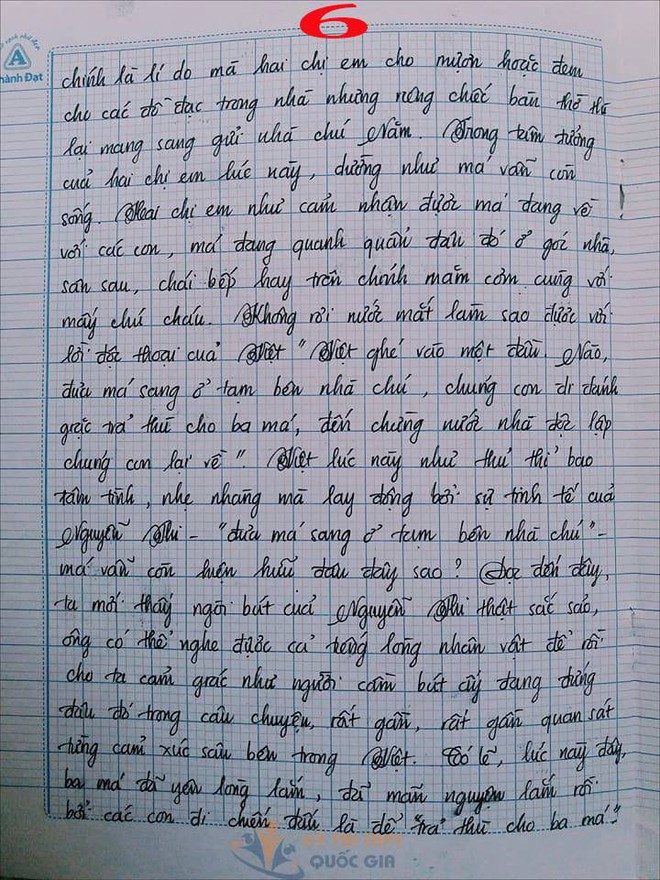 6
A
hành Đạt
chính là lí do mà hai chị em cho mượn hoặc đem
cho các đồ đạc trong nhà nhưng riêng chiếc bàn thờ thì
lại mang sang gửi nhà chú Năm. Trong tâm tưởng
của hai chị em lúc này, dường như má vẫn còn
sống. Hai chị em như cảm nhận được má đang về
với các con, má đang quanh quẩn đâu đó ở góc nhà,
sân sau, chái bếp hay trên chính mâm cơm cúng với
mấy chú cháu. Không rơi nước mắt làm sao được với
lời độc thoại của Việt "Việt ghé vào một đầu. Nào,
đưa má sang ở tạm bên nhà chú, chúng con đi đánh
giặc trả thù cho ba má, đến chừng nước nhà độc lập
chúng con lại về". Việt lúc này như thủ thỉ bao
tâm tình, nhẹ nhàng mà lay động bởi sự tinh tế của
Nguyễn Thi - "đưa má sang ở tạm bên nhà chú" -
má vẫn còn hiện hữu đâu đây sao? Đọc đến đây,
ta mới thấy ngòi bút của Nguyễn Thi thật sắc sảo,
ông có thể nghe được cả tiếng lòng nhân vật để rồi
cho ta cảm giác như người cầm bút ấy đang đứng
đâu đó trong câu chuyện, rất gần, rất gần quan sát
từng cảm xúc sâu bên trong Việt. Có lẽ, lúc này đây,
ba má đã yên lòng lắm, đã mãn nguyện lắm rồi
bởi các con đi chiến đấu là để "trả thù cho ba má".
QUỐC GIA